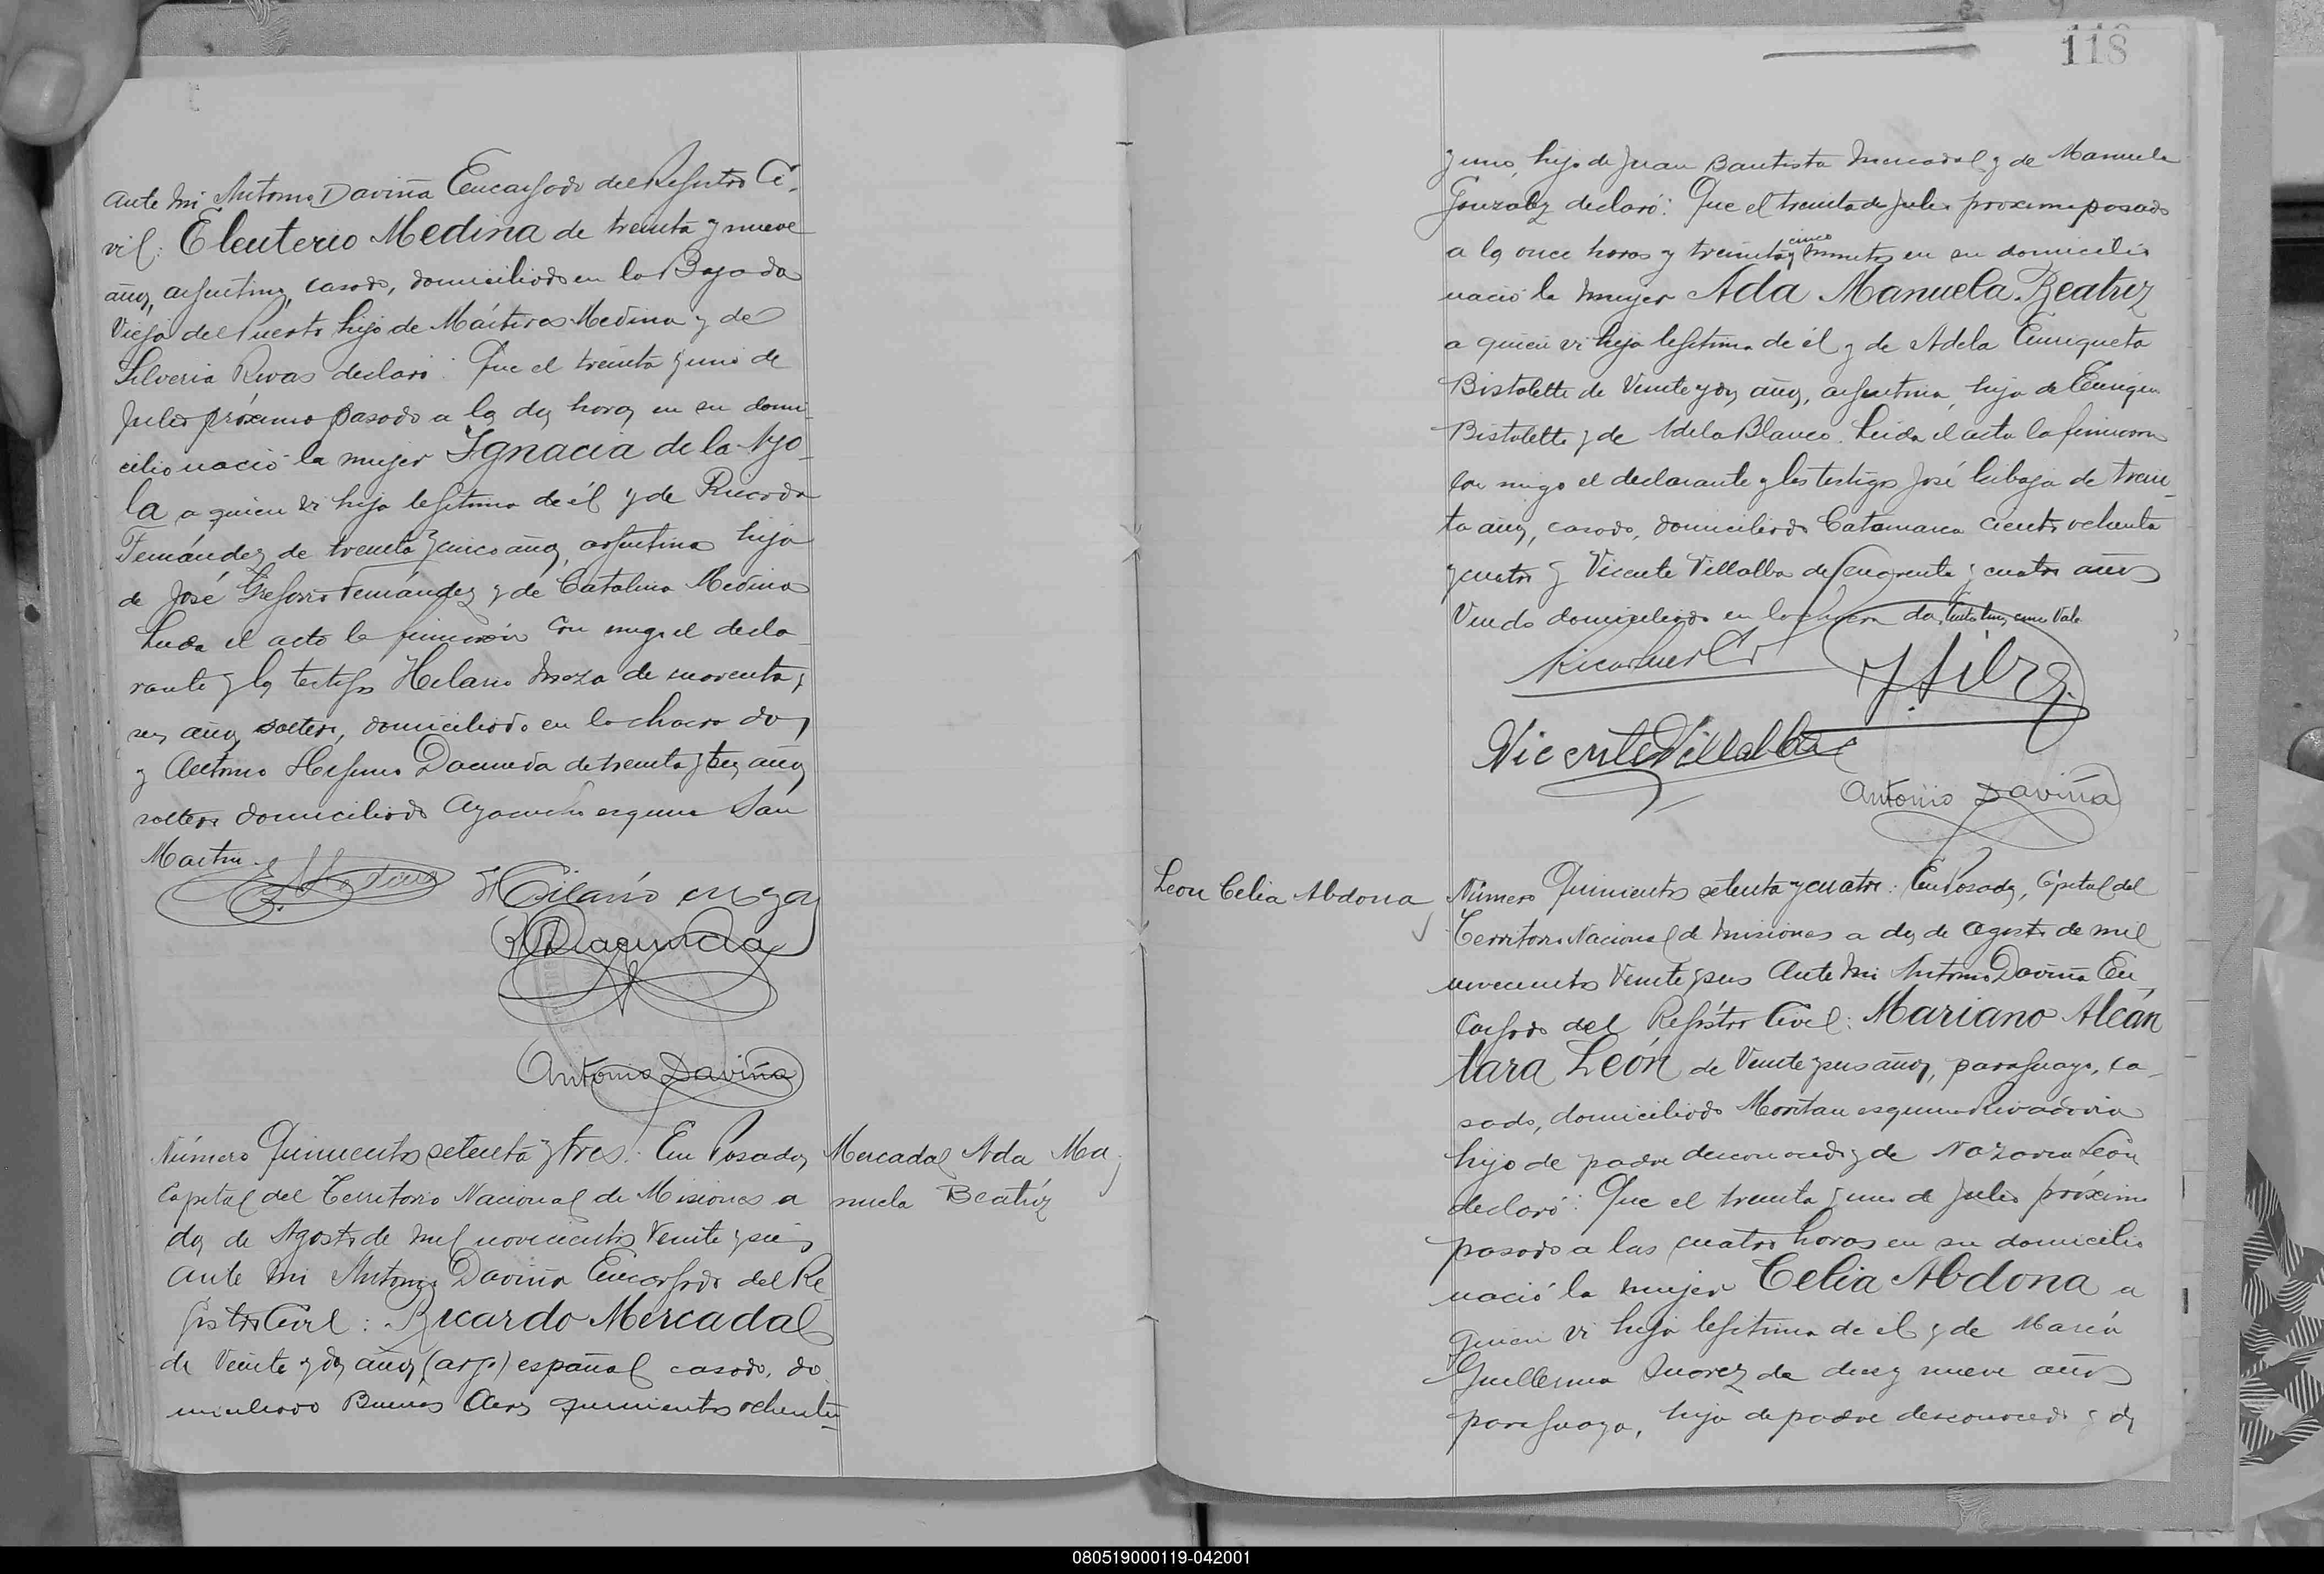 Ante mi Antonio Daviña Encargado del Registro Ci-
vil: Eleuterio Medina de treinta y nueve
años, argentino, casado, domiciliado en la Bajada
Vieja del Puerto hijo de Mártires Medina y de
Silveria Rivas declaró: Que el treinta y uno de
Julio próximo pasado a las dos horas en su domi-
cilio nació la mujer Ignacia de la Yo-
la a quien vi hija legítima de él y de Ricarda
Fernández de treinta y cinco años, argentina hija
de José Gregorio Fernández y de Catalina Medina
Leida el acta la firmaron con migo el decla-
rante y los testigos Hilario Meza de cuarenta y
seis años, soltero, domiciliado en la chacra dos
y Antonio Higinio Dacunda de treinta y tres años
soltero domiciliado Ayacucho esquina San
Martin.
E. Medina
Hilario Meza
Dacunda
Antonio Daviña
Número Quinientos setenta y tres: En Posadas
Capital del Territorio Nacional de Misiones a
dos de Agosto de mil novecientos Veinte y seis
Ante mi Antonio Daviña Encargado del Re-
gistro Civil: Ricardo Mercadal
de Veinte y dos años, (arg.) español casado, do
miciliado Buenos Aires quinientos ochenta
Mercadal Ada Ma-
nuela Beatríz
118
y uno, hijo de Juan Bautista Mercadal y de Manuela
Gonzalez declaró: Que el treinta de Julio proximo pasado
a las once horas y treinta y cinco minutos en su domicilio
nació la mujer Ada Manuela Beatriz
a quien vi hija legítima de él y de Adela Enriqueta
Bistolette de Veinte y dos años, argentina, hija de Enrique
Bistolette y de Adela Blanco. Leida el acta la firmaron
con migo el declarante y los testigos José Gibaja de trein-
ta años, casado, domiciliado Catamarca ciento ochenta
y cuatro y Vicente Villalba de cincuenta y cuatro años
Viudo domiciliado en la chacra dos,
Vale
Vicente Villalba
Antonio Daviña
Leon Celia Abdona
Número Quinientos setenta y cuatro: En Posadas, Capital del
Territorio Nacional de Misiones a dos de Agosto de mil
novecientos Veinte y seis Ante mi Antonio Daviña En-
cargado del Registro Civil: Mariano Alcán
tara León de Veinte y seis años, paraguayo, ca-
sado, domiciliado Moritan esquina Rivadavia
hijo de padre desconocido y de Nazaria León
declaró: Que el treinta y uno de Julio próximo
pasado a las cuatro horas en su domicilio
nació la mujer Celia Abdona a
quien vi hija legítima de él y de María
Guillerma Suarez de diez y nueve años
paraguaya, hija de padre desconocido y de
080519000119-042001